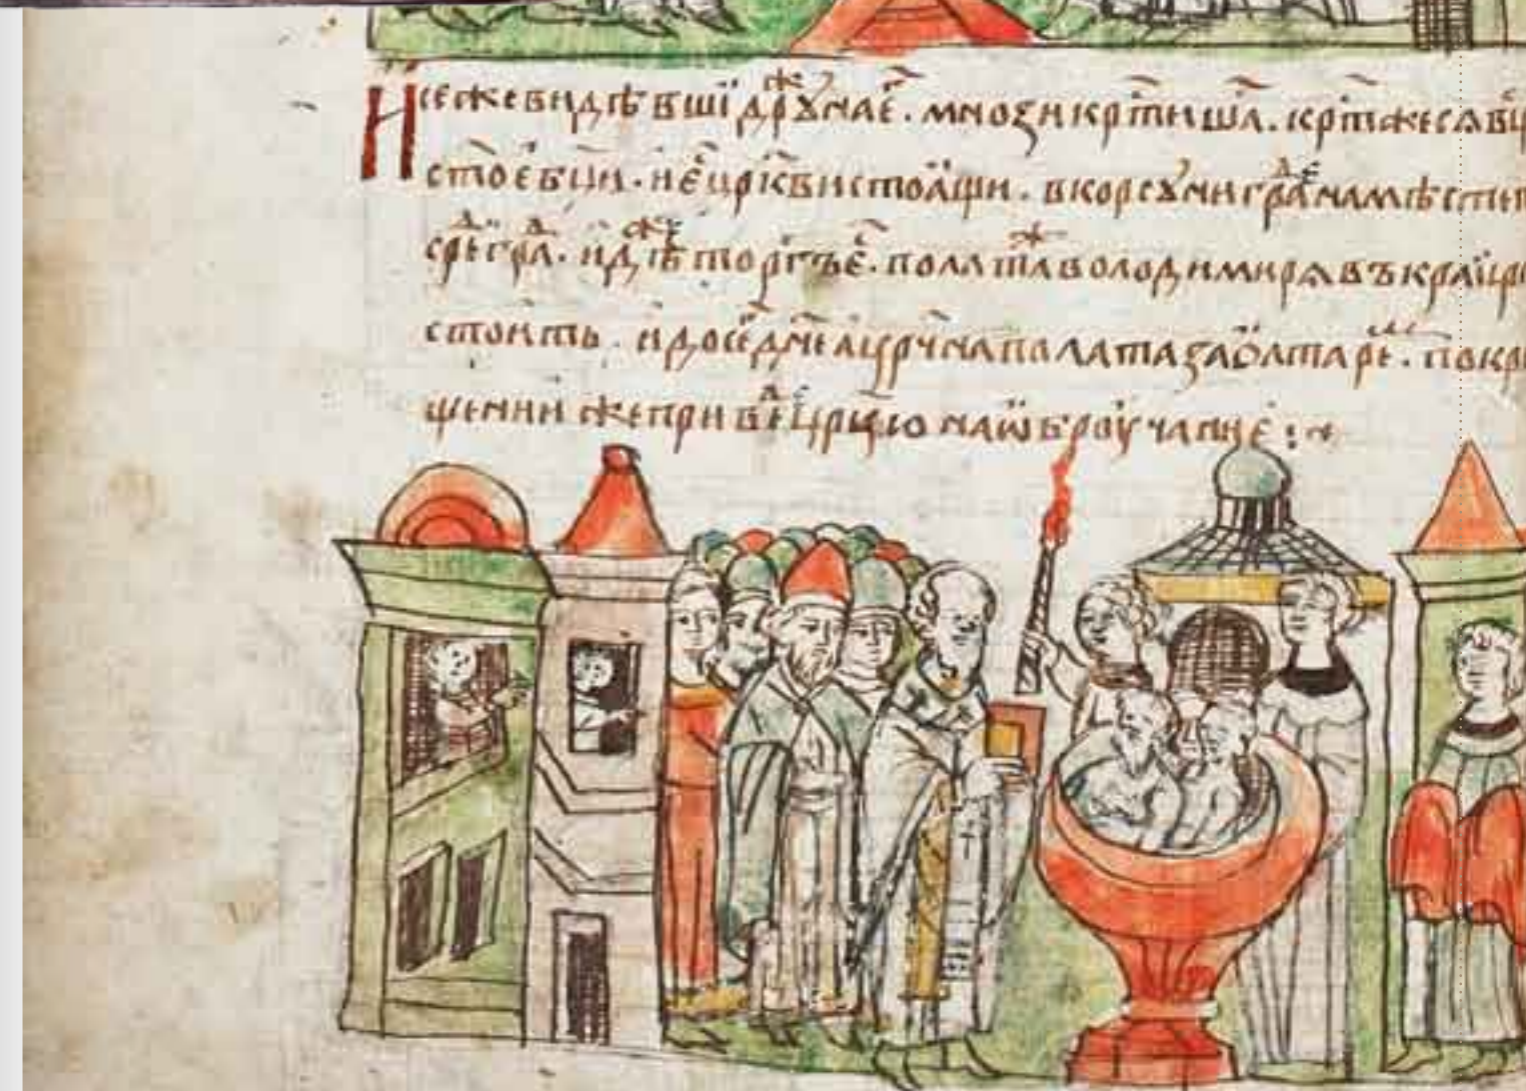 Исежевидѣвшїдрꙋжнаеⷭ҇. мнозикрⷭ҇тишⷭ҇ѧ. крⷭ҇тжесѧвц
ст҃оеб҃ци. иеⷭ҇црк҃вистоꙗщи. вкорсꙋниграⷣенамѣсте
среⷣграⷣ. идѣⷤторгъеⷭ҇. полатаⷤволодимирѧвъкраицр
стоить. идосеⷢ҇дн҃еацр҃чнаполатазаолтареⷨ. покр
щениижеправеⷣцр҃цюнаѡброучанье :~